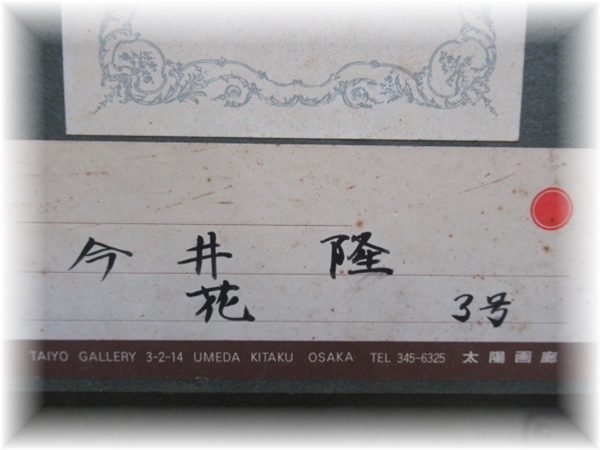 今井 隆
花 3号
TAIYO GALLERY 3-2-14 UMEDA KITAKU OSAKA TEL 345-6325 太陽画廊